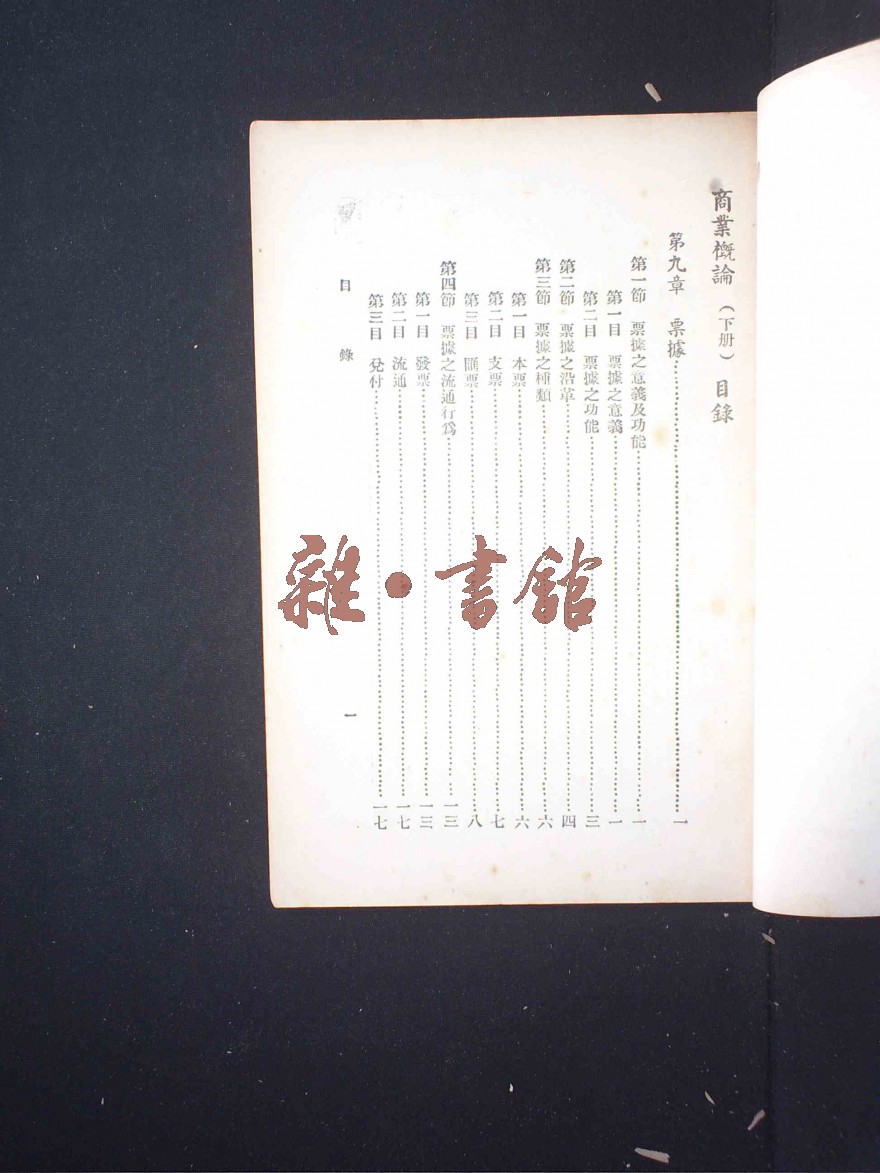 商業概論（下册）目錄
第九章　票據……一
第一節　票據之意義及功能……一
第一目　票據之意義……一
第二目　票據之功能……三
第二節　票據之沿革……四
第三節　票據之種類……六
第一目　本票……六
第二目　支票……七
第三目　匯票……八
第四節　票據之流通行爲……一三
第一目　發票……一三
第二目　流通……一七
第三目　兌付……一七
目　錄　一
雜・書館